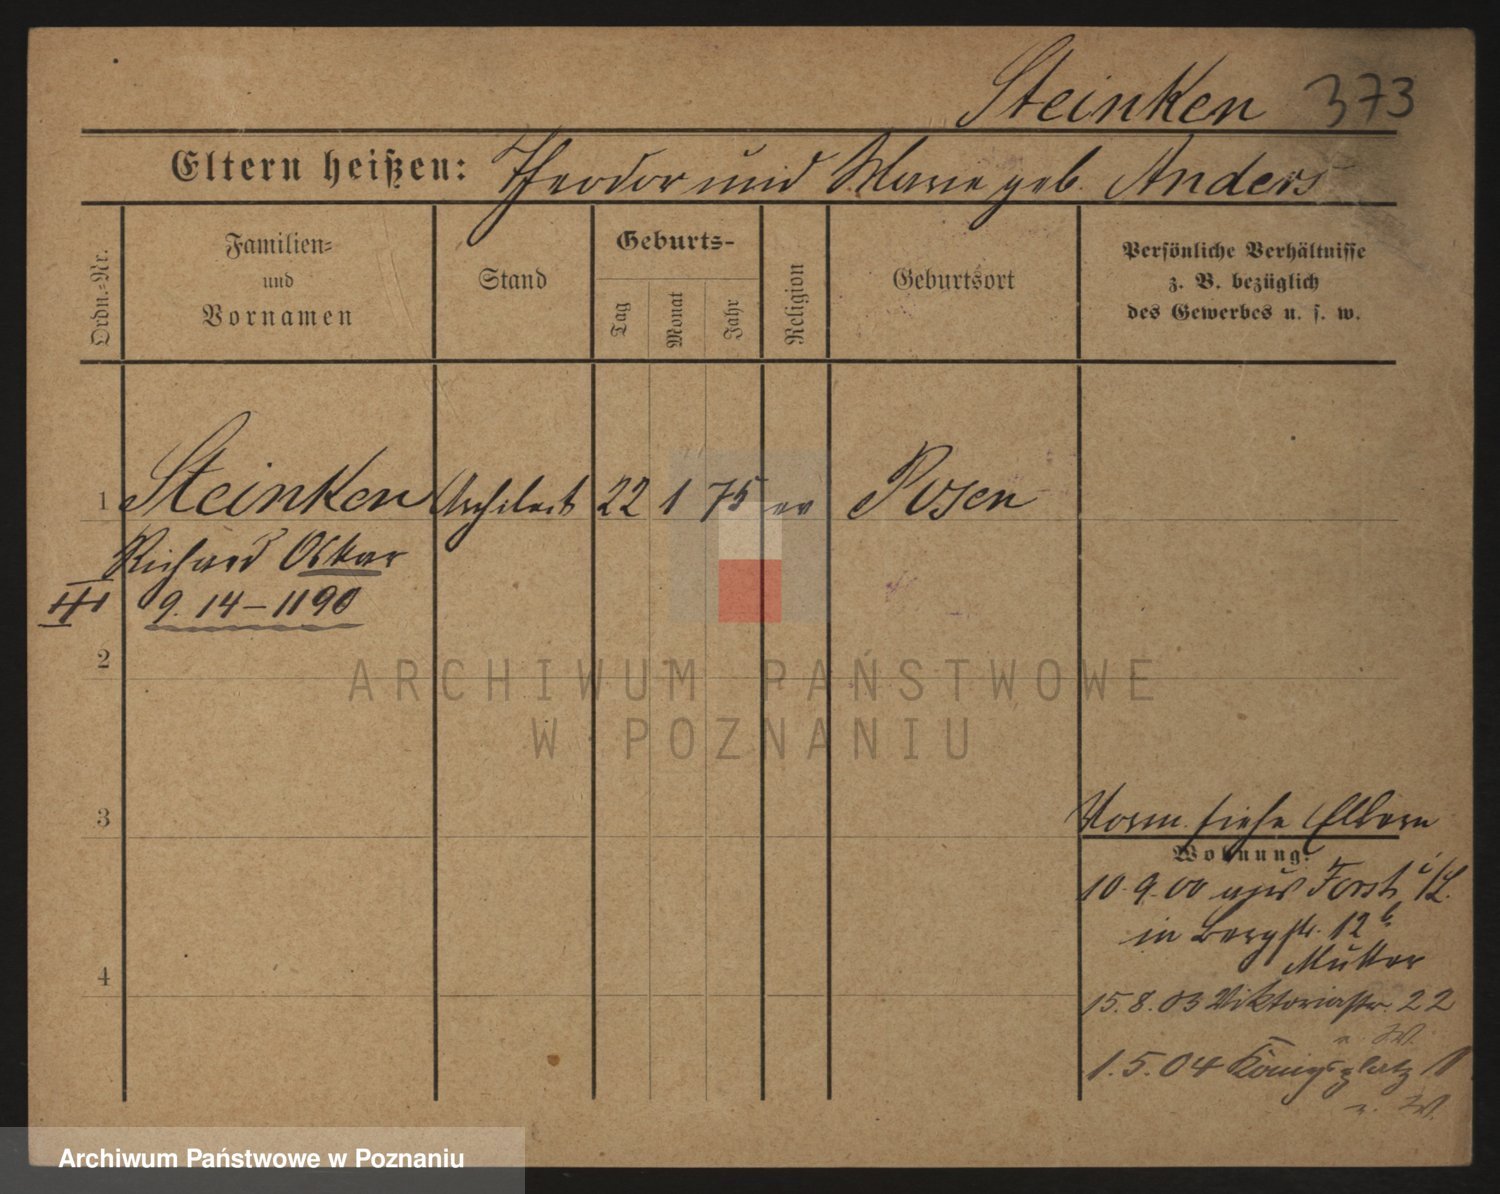 Steinken 373
Eltern heißen: Theodor und Marie geb. Anders
Ordn.-Nr.
Familien-
und
Vornamen
Stand
Geburts-
Tag
Monat
Jahr
Religion
Geburtsort
Persönliche Verhältnisse
z. B. bezüglich
des Gewerbes u. s. w.
1 Steinken Architect 22 1 75 ev Posen
Richard Oskar
III 9. 14 – 1190
2
3
4
Vorm. siehe Eltern
Wohnung:
10.9.00 aus Forst i/L.
in Bergstr. 12b
Mutter
15.8.03 Viktoriastr. 22
n. W.
1.5.04 Königsplatz
n. W.
ARCHIWUM PAŃSTWOWE
W POZNANIU
Archiwum Państwowe w Poznaniu